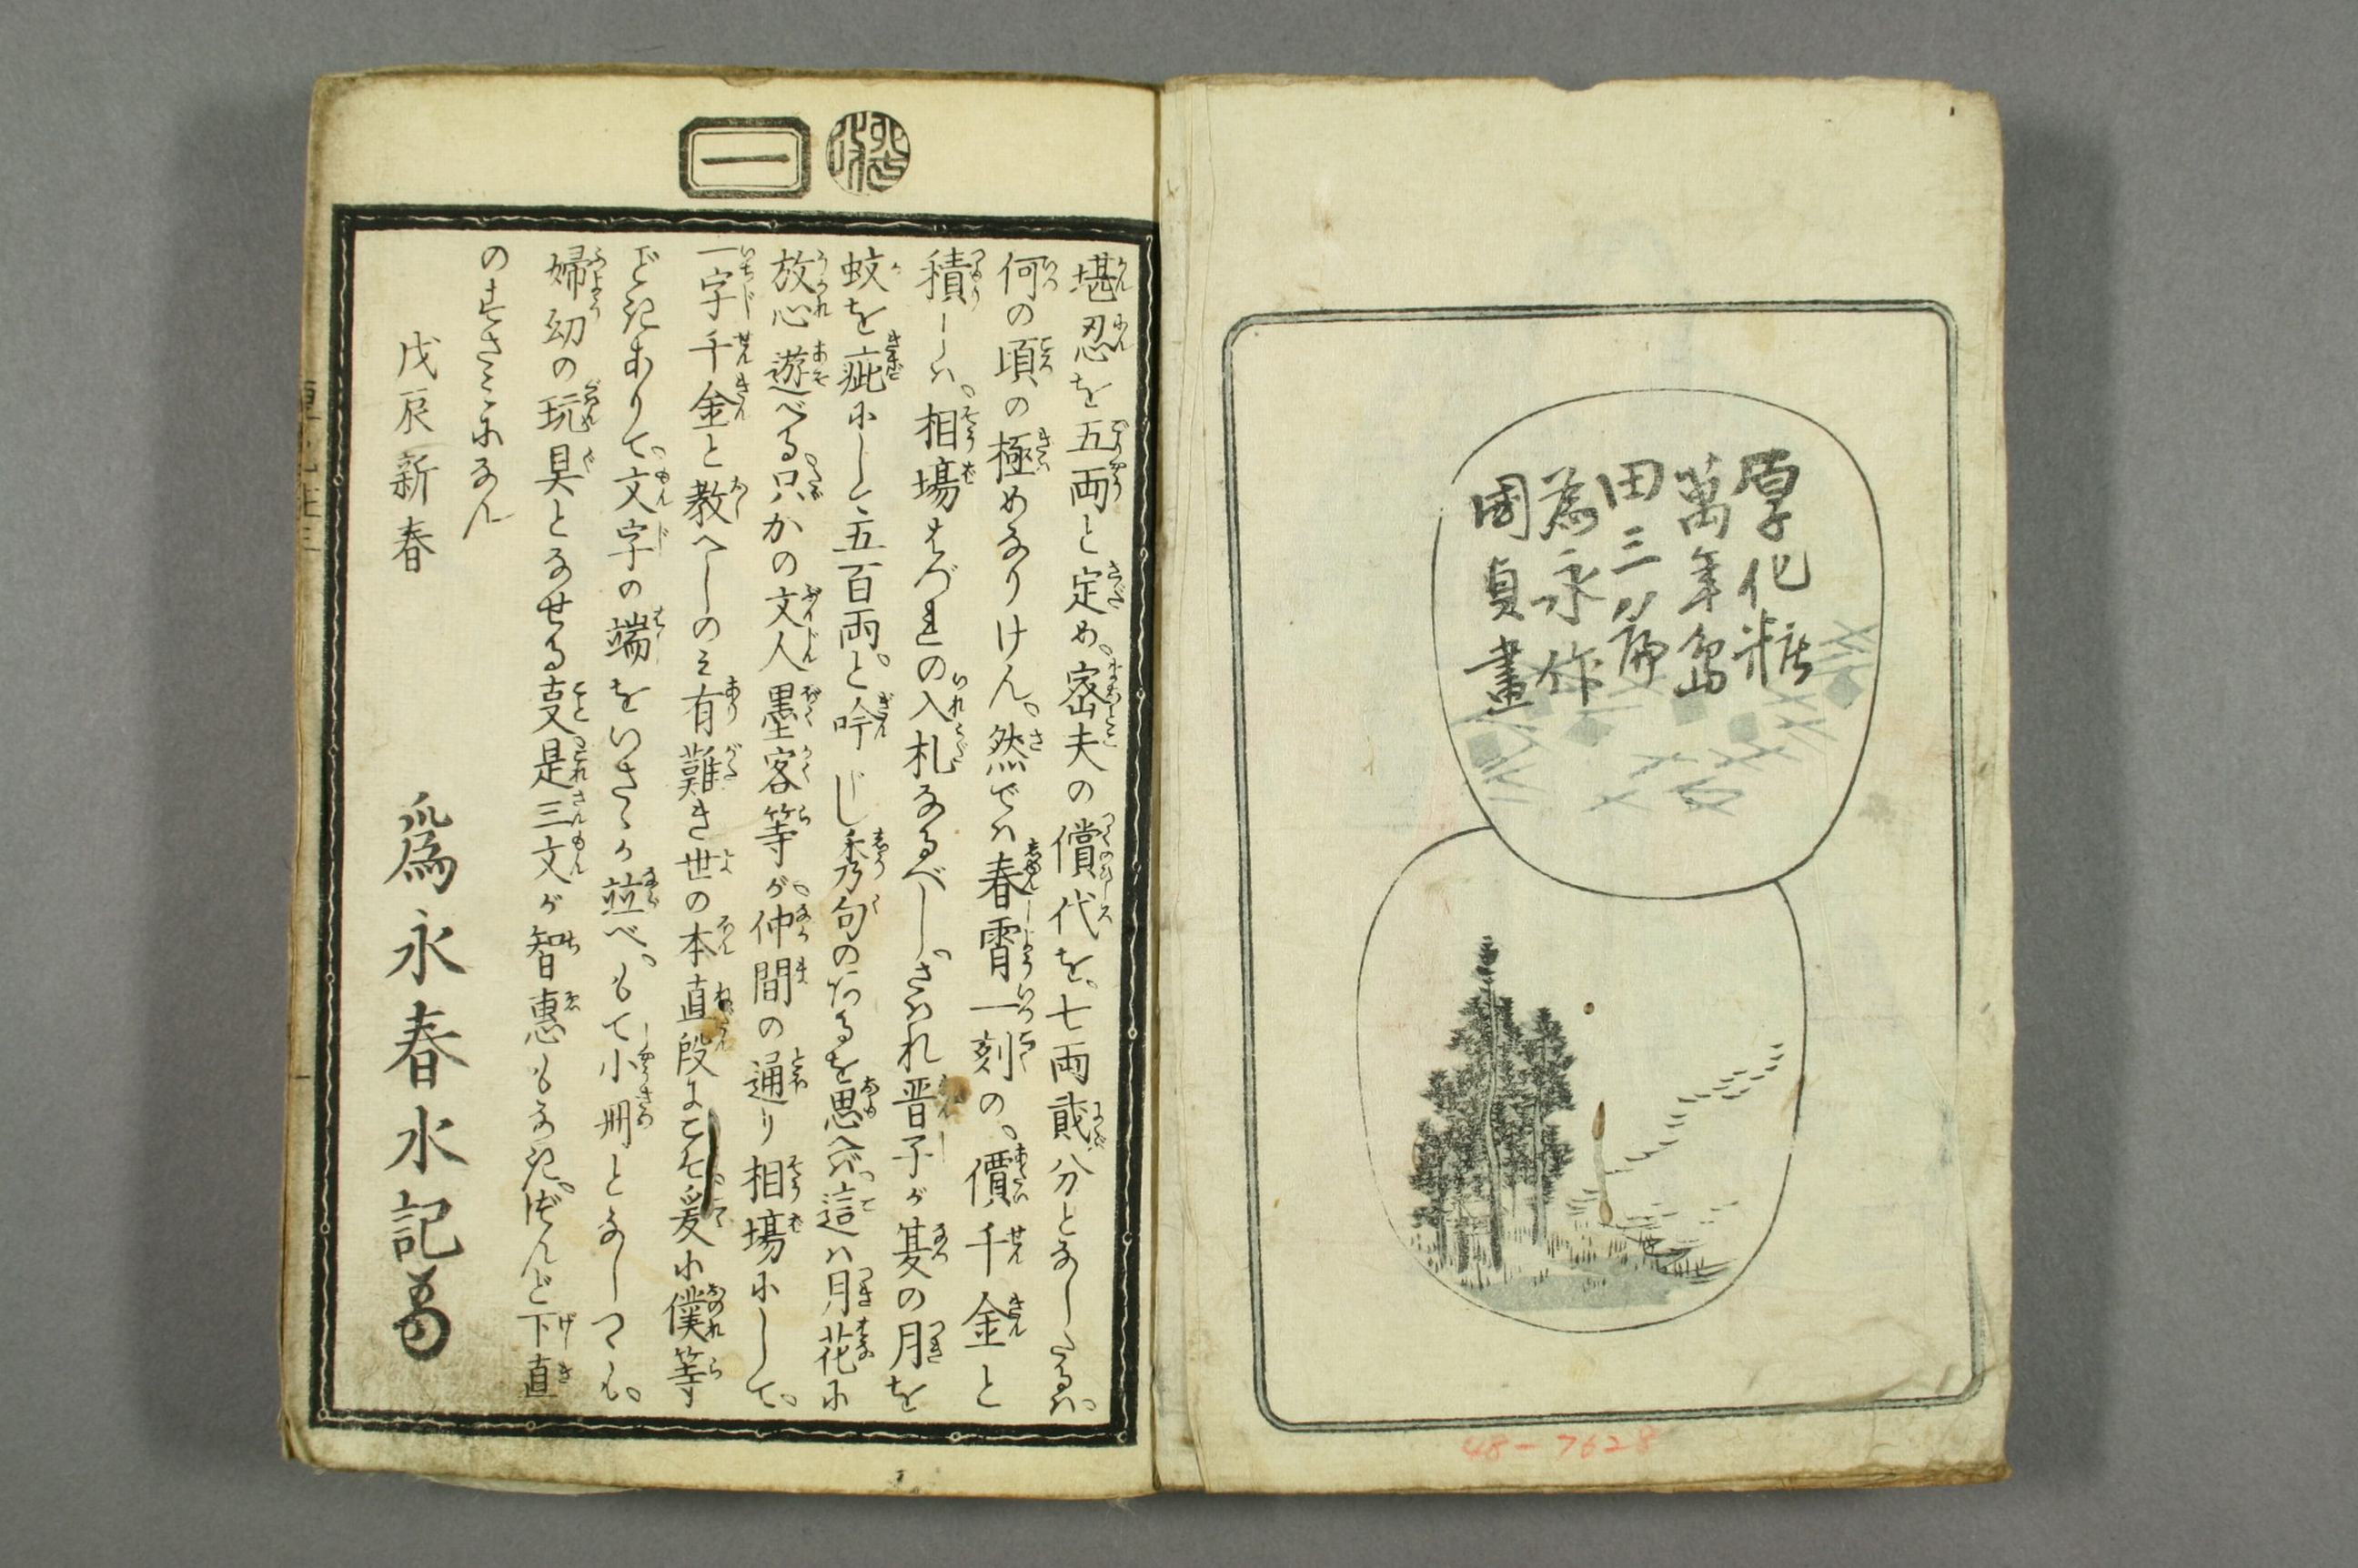 厚化粧
萬年島
田三八編
為永作
國貞畫
48-7628
一
堪忍を五両と定め。密夫の償代を。七両貮分となしたるハ。
何の頃の極めなりけん。然でハ春霄一刻の。價千金と
積しハ。相場はづれの入札なるべし。さハれ晋子が夏の月を
蚊を疵にして五百両。と吟じし秀句のたるを思へバ這ハ月花に
放心遊べる。只かの文人墨客等が。仲間の通り相場にして。
一字千金と教へしのミ有難き世の本直段にこそ爰に僕等
どきありて。文字の端をいさゝか竝べ。もて小冊となしつるも。
婦幼の玩具となせる支是三文が智惠もなき。ぼんど下直
のすさミになん
戊辰新春
爲永春水記